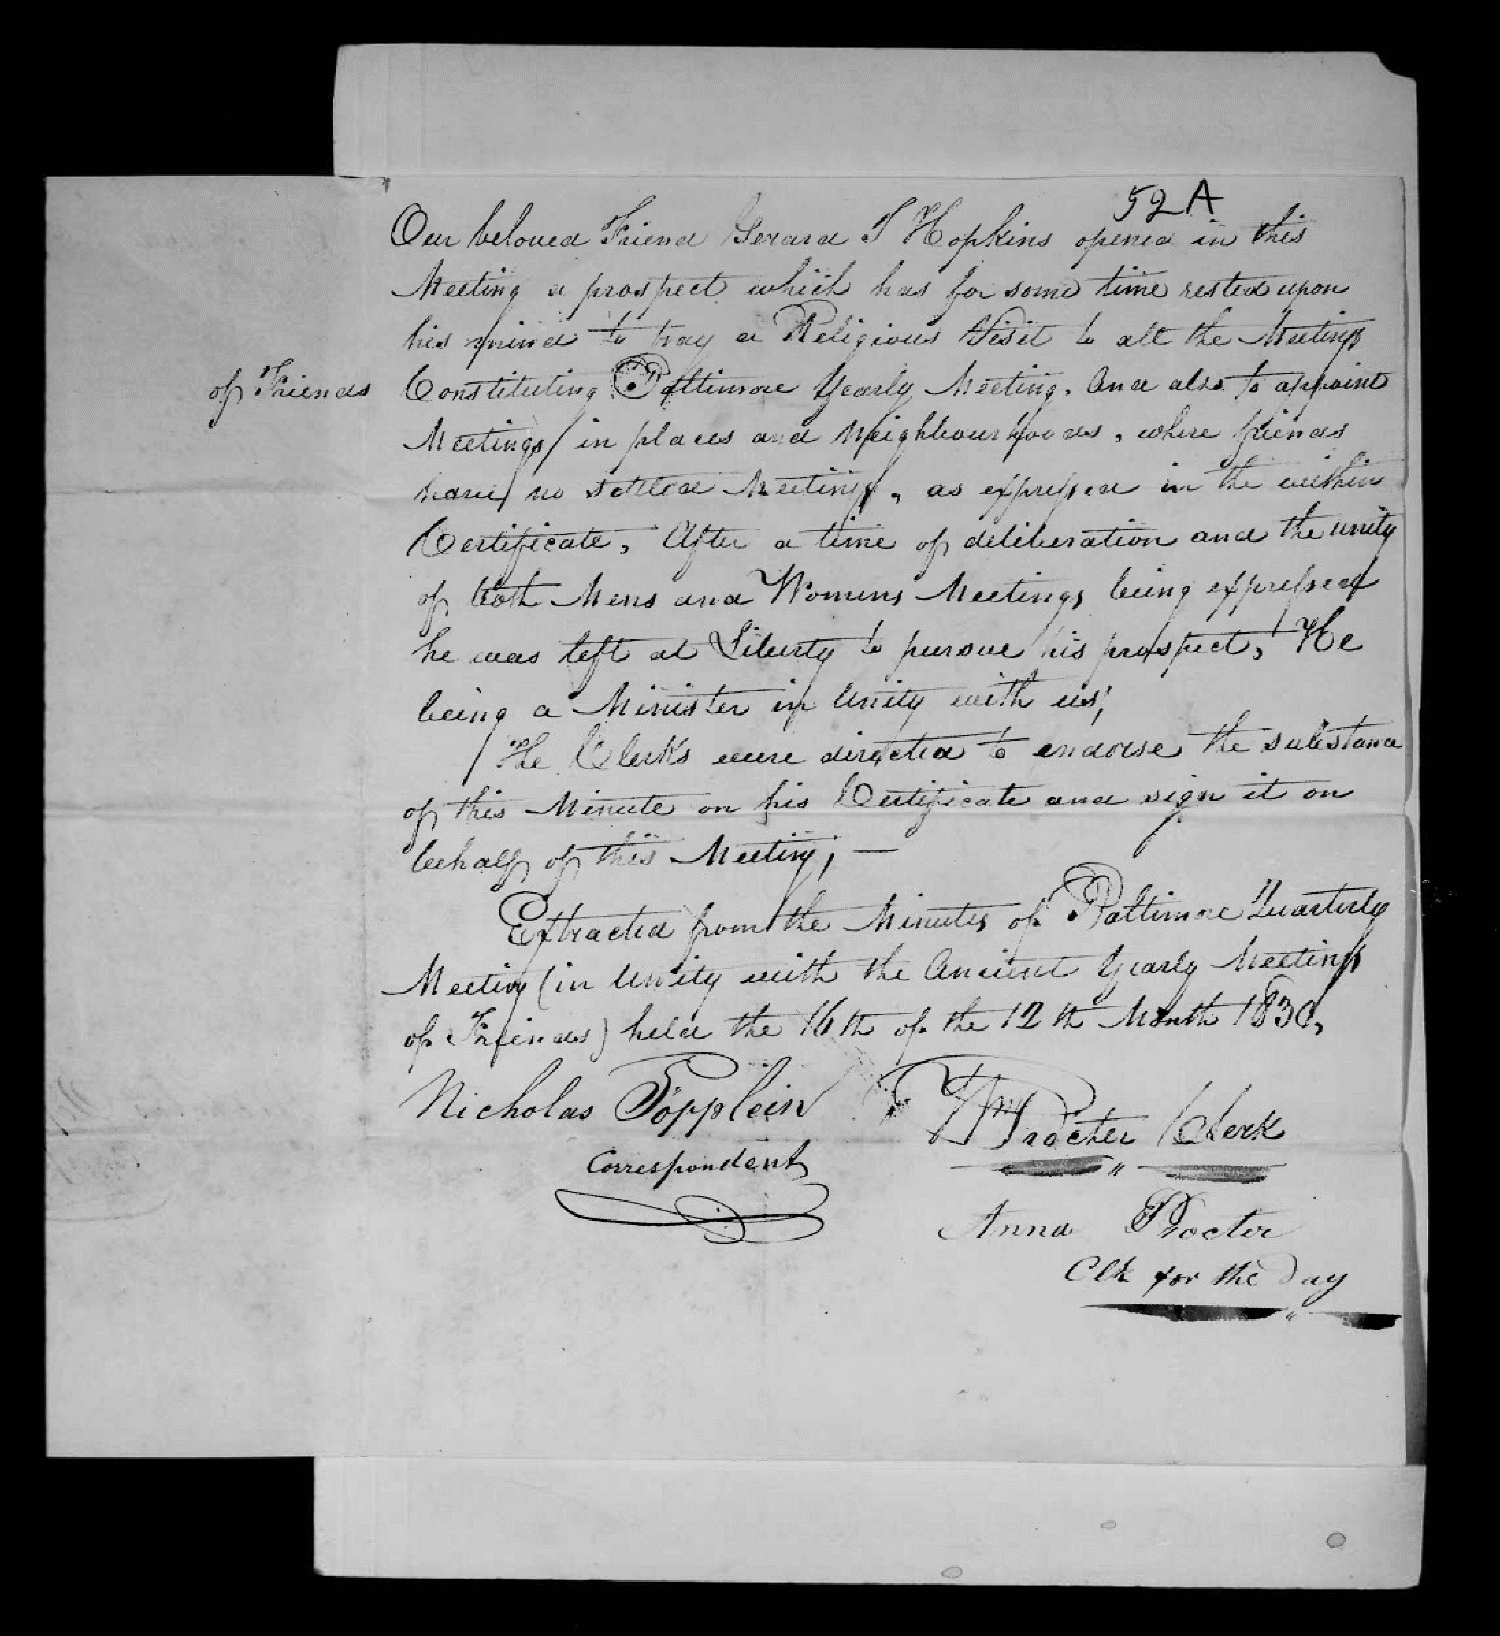 52A
Our beloved Friend Gerard T Hopkins opened in this
Meeting a prospect which has for some time rested upon
his mind to pay a Religious Visit to all the Meetings
of Friends Constituting Baltimore Yearly Meeting. And also to appoint
Meetings in places and Neighbourhoods, where friends
have no settled Meetings, as expressed in the within
Certificate, After a time of deliberation and the unity
of both Mens and Womens Meetings being expressed
he was left at Liberty to pursue his prospect, He
being a Minister in Unity with us;
The Clerks were directed to endorse the substance
of this Minute on his Certificate and sign it on
behalf of this Meeting; —
Extracted from the Minutes of Baltimore Quarterly
Meeting (in Unity with the Ancient Yearly Meeting
of Friends) held the 16th of the 12th Month 1830,
Nicholas Popplein
Wm Procter Clerk
Correspondent
Anna Procter
Clk for the Day